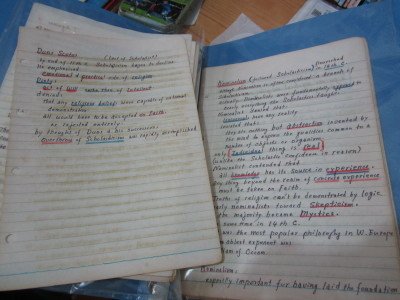 Duns Scotus (last of Scholastics)
by end of 13th C Scholasticism began to decline
He emphasised
emotional & practical side of religion
Piety
act of will rather than of intellect
denied:
that any religious belief were capable of rational
demonstration
all would have to be accepted on Faith
or rejected entirely
by thought of Duns & his successors
Overthrow of Scholasticism was rapidly accomplished
Nominalism (Destroyed Scholasticism) Flourished in 14th C.
although Nominalism is often considered a branch of
Nominalists were fundamentally opposed to
nearly everything the Scholastics taught.
Nominalist denied that
Universals have any reality
insisted that:
they are nothing but abstractions invented by
the mind to express the qualities common to a
number of objects or organisms
only Individual thing is real
(unlike the Scholastic confidence in reason)
Nominalist contended that
all knowledge has its source in experience.
Anything beyond the realm of concrete experience
must be taken on faith.
Truths of religion can't be demonstrated by logic
early nominalists toward Skepticism.
the majority became Mystics.
some time in 14th C.
was the most popular philosophy in W. Europe
ablest exponent was
of Occam.
Nominalism:
especially important for having laid the foundation